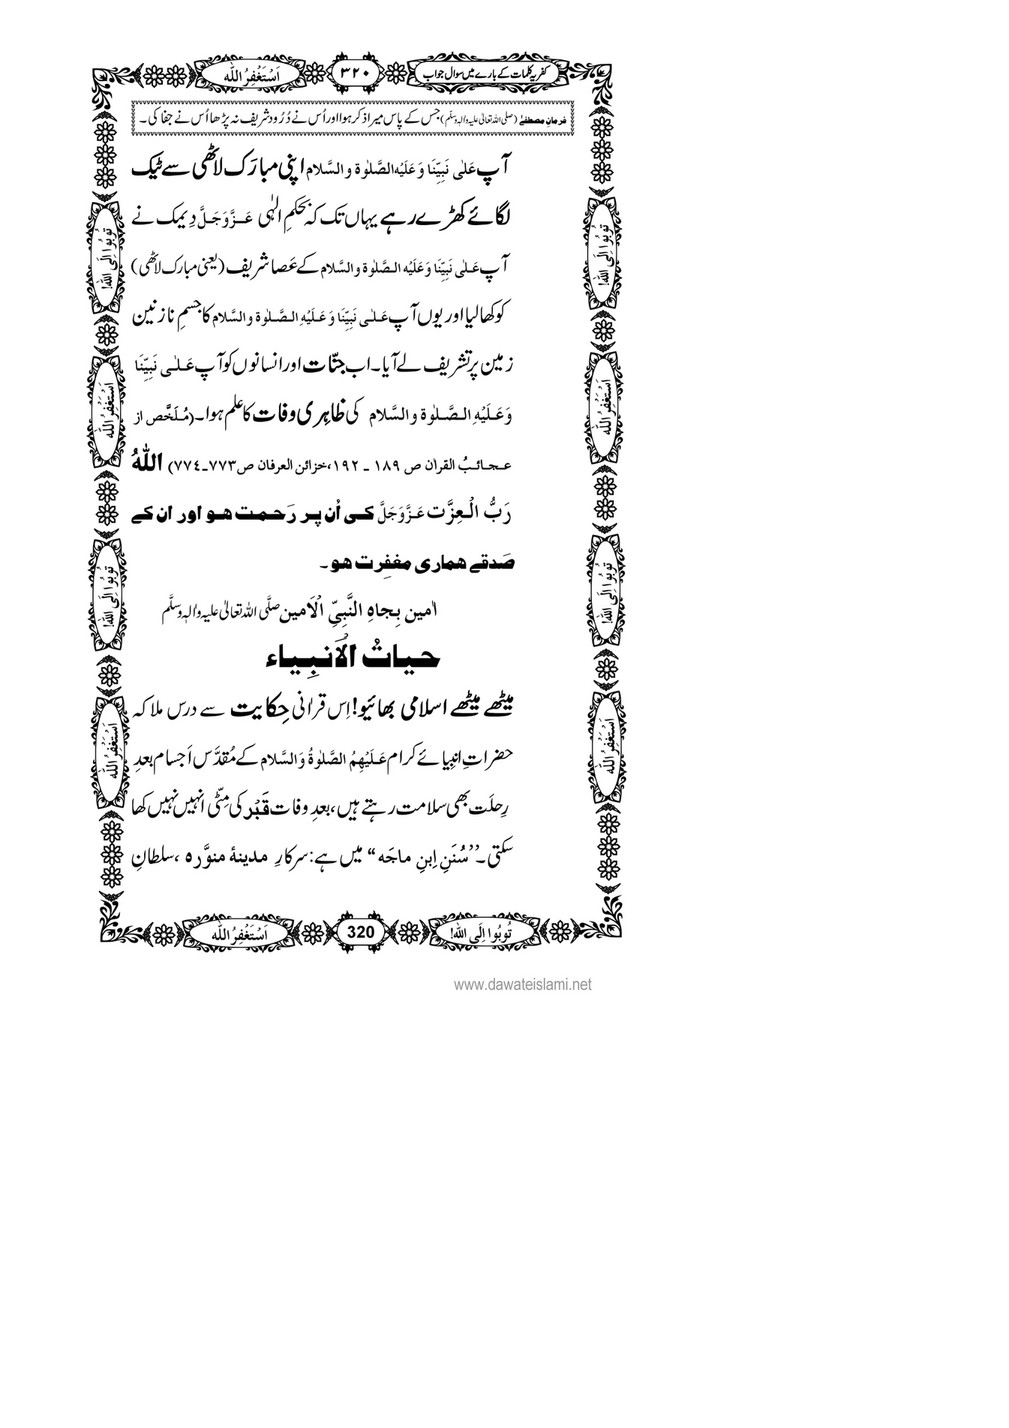 کفریہ کلمات کے بارے میں سوال جواب ۳۲۰ اَسْتَغْفِرُ اللّٰہ
فرمانِ مصطفےٰ (صلی اللہ تعالیٰ علیہ واٰلہٖ وسلّم) جس کے پاس میرا ذکر ہوا اور اُس نے دُرُود شریف نہ پڑھا اُس نے جفا کی ۔
آپ عَلٰی نَبِیِّنَا وَ عَلَیْہِ الصَّلٰوۃ والسَّلام اپنی مبارَک لاٹھی سے ٹیک
لگائے کھڑے رہے یہاں تک کہ بحکمِ الٰہی عَزَّوَجَلَّ دِیمک نے
آپ عَلٰی نَبِیِّنَا وَعَلَیْہِ الصَّلٰوۃ والسَّلام کے عَصا شریف (یعنی مبارک لاٹھی)
کو کھا لیا اور یوں آپ عَلٰی نَبِیِّنَا وَ عَلَیْہِ الصَّلٰوۃ والسَّلام کا جسمِ نازنین
زمین پر تشریف لے آیا۔ اب جِنّات اور انسانوں کو آپ عَلٰی نَبِیِّنَا
وَعَلَیْہِ الصَّلٰوۃ والسَّلام کی ظاہِری وفات کا علم ہوا۔ (مُلَخَّص از
عجائبُ القراٰن ص ۱۸۹ ۔ ۱۹۲، خزائن العرفان ص ۷۷۳۔۷۷٤) اللّٰہُ
رَبُّ الْعِزَّت عَزَّوَجَلَّ کی اُن پر رَحمت ہو اور ان کے
صَدقے ہماری مغفِرت ہو ۔
اٰمین بِجاہِ النَّبِیِّ الْاَمین صلَّی اللہ تعالیٰ علیہ واٰلہٖ وسلَّم
حیاتُ الْاَنبِیاء
میٹھے میٹھے اسلامی بھائیو! اِس قراٰنی حِکایت سے درس ملا کہ
حضراتِ انبِیائے کرام عَلَیْہِمُ الصَّلٰوۃُ وَالسَّلام کے مُقدَّس اَجسام بعدِ
رِحلَت بھی سلامت رہتے ہیں، بعدِ وفات قَبْر کی مِٹّی انہیں نہیں کھا
سکتی۔ ’’سُنَنِ اِبنِ ماجَہ‘‘ میں ہے: سرکارِ مدینۂ منوَّرہ، سلطانِ
تُوبُوا اِلَی اللّٰہ! 320 اَسْتَغْفِرُ اللّٰہ
تُوبُوا اِلَی اللّٰہ!
اَسْتَغْفِرُ اللّٰہ
تُوبُوا اِلَی اللّٰہ!
اَسْتَغْفِرُ اللّٰہ
تُوبُوا اِلَی اللّٰہ!
اَسْتَغْفِرُ اللّٰہ
تُوبُوا اِلَی اللّٰہ!
اَسْتَغْفِرُ اللّٰہ
www.dawateislami.net